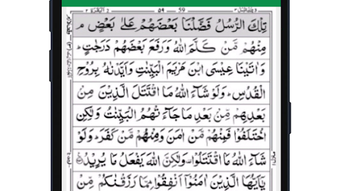 تِلْكَ الرُّسُلُ فَضَّلْنَا بَعْضَهُمْ عَلٰى بَعْضٍ ۘ
مِنْهُمْ مَّنْ كَلَّمَ اللّٰهُ وَرَفَعَ بَعْضَهُمْ دَرَجٰتٍ ؕ
وَاٰتَيْنَا عِيْسَى ابْنَ مَرْيَمَ الْبَيِّنٰتِ وَاَيَّدْنٰهُ بِرُوْحِ
الْقُدُسِ ؕ وَلَوْ شَآءَ اللّٰهُ مَا اقْتَتَلَ الَّذِيْنَ مِنْۢ
بَعْدِهِمْ مِّنْۢ بَعْدِ مَا جَآءَتْهُمُ الْبَيِّنٰتُ وَلٰكِنِ
اخْتَلَفُوْا فَمِنْهُمْ مَّنْ اٰمَنَ وَمِنْهُمْ مَّنْ كَفَرَ ؕ وَلَوْ
شَآءَ اللّٰهُ مَا اقْتَتَلُوْا ۟ وَلٰكِنَّ اللّٰهَ يَفْعَلُ مَا يُرِيْدُ
يٰۤاَيُّهَا الَّذِيْنَ اٰمَنُوْۤا اَنْفِقُوْا مِمَّا رَزَقْنٰكُمْ مِّنْ